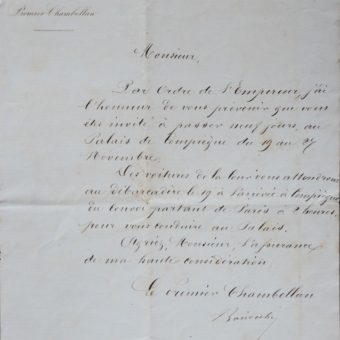 Premier Chambellan
Monsieur,
Par Ordre de l'Empereur, j'ai
l'honneur de vous prévenir que vous
êtes invité à passer neuf jours, au
Palais de Compiègne du 19 au 27
Novembre.
Les voitures de la Cour vous attendront
au débarcadère le 19 à l'arrivée à Compiègne
du Convoi partant de Paris à heures,
pour vous conduire au Palais.
Agréez, Monsieur, l'assurance
de ma haute considération.
Le Premier Chambellan